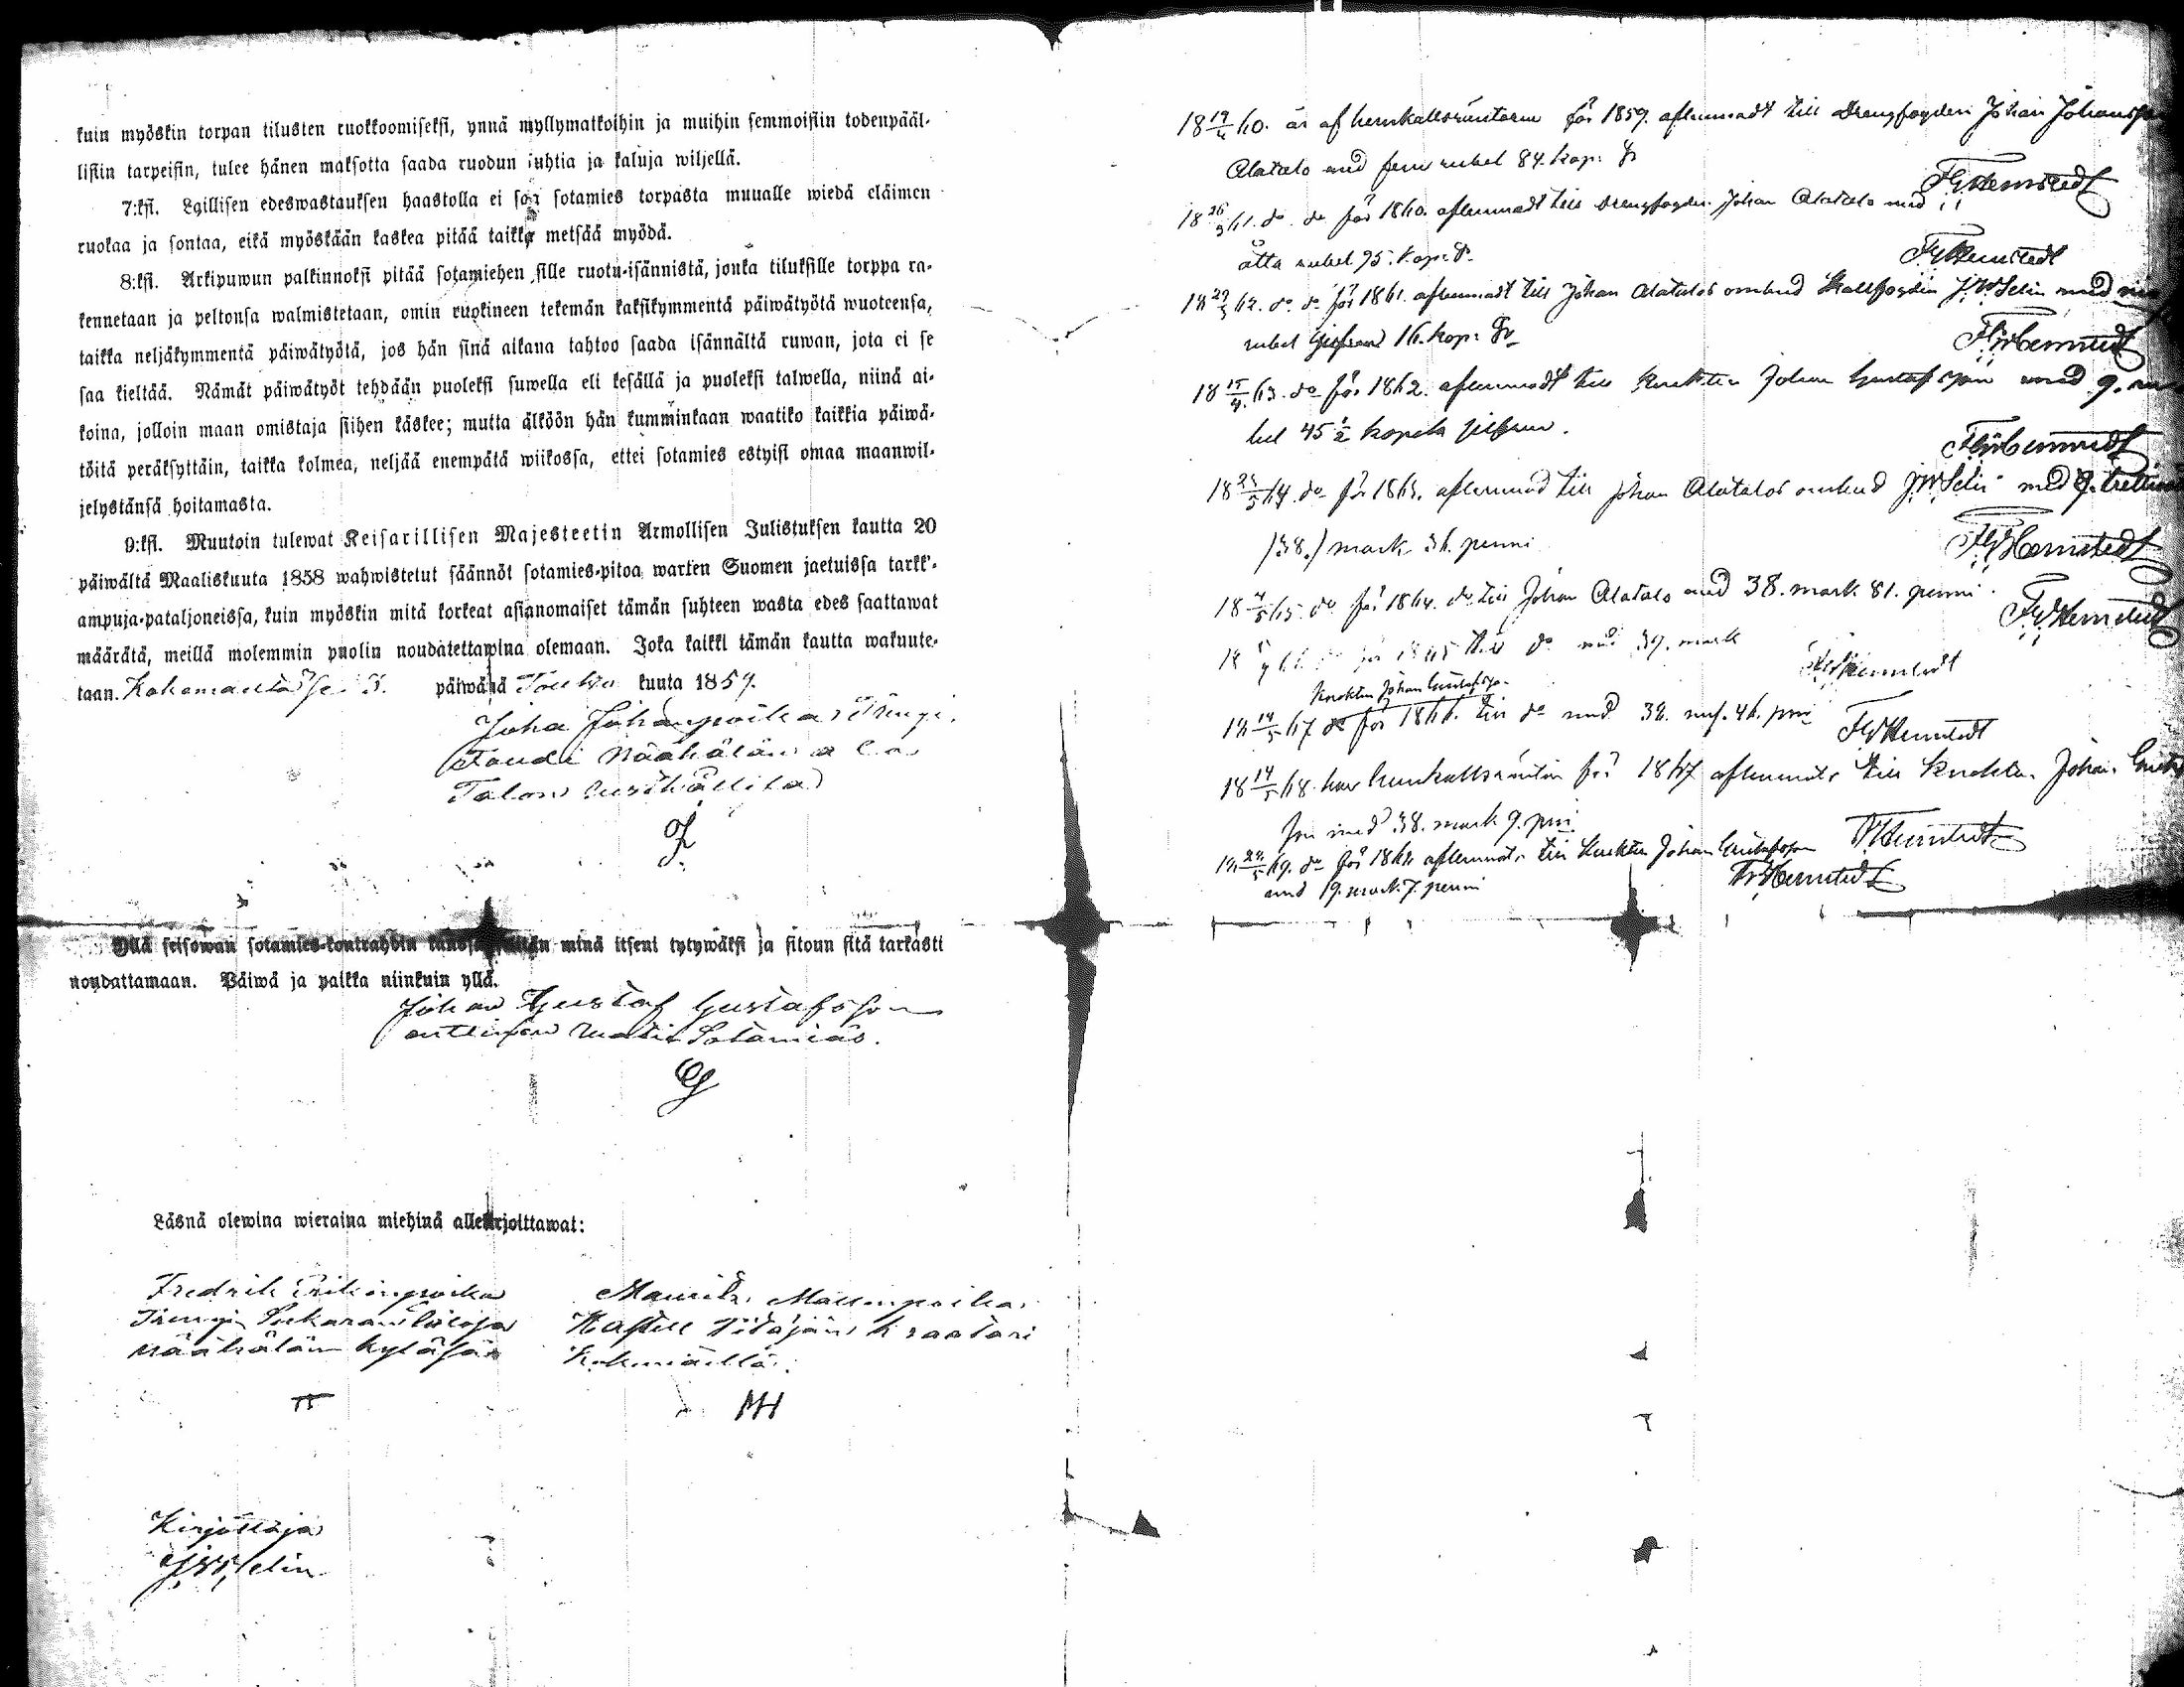 kuin myöskin torpan tilusten ruokkoomiseksi, ynnä myllymatkoihin ja muihin semmoisiin todenpääl-
lisiin tarpeisin, tulee hänen maksotta saada ruodun juhtia ja kaluja wiljellä.
7:ksi. Laillisen edeswastauksen haastolla ei saa sotamies torpasta muualle wiedä eläimen
ruokaa ja sontaa, eikä myöskään kaskea pitää taikka metsää myödä.
8:ksi. Arkipuwun palkinnoksi pitää sotamiehen sille ruotu-isännistä, jonka tiluksille torppa ra-
kennetaan ja peltonsa walmistetaan, omin ruokineen tekemän kaksikymmentä päiwätyötä wuoteensa,
taikka neljäkymmentä päiwätyötä, jos hän sinä aikana tahtoo saada isännältä ruwan, jota ei se
saa kieltää. Nämät päiwätyöt tehdään puoleksi suwella eli kesällä ja puoleksi talwella, niinä ai-
koina, jolloin maan omistaja siihen käskee; mutta älköön hän kumminkaan waatiko kaikkia päiwä-
töitä peräksyttäin, taikka kolmea, neljää enempätä wiikossa, ettei sotamies estyisi omaa maanwil-
jelystänsä hoitamasta.
9:ksi. Muutoin tulewat Keisarillisen Majesteetin Armollisen Julistuksen kautta 20
päiwältä Maaliskuuta 1858 wahwistetut säännöt sotamies-pitoa warten Suomen jaetuissa tarkk'-
ampuja-pataljoneissa, kuin myöskin mitä korkeat asianomaiset tämän suhteen wasta edes saattawat
määrätä, meillä molemmin puolin noudatettawina olemaan. Joka kaikki tämän kautta wakuute-
taan. päiwänä Touko kuuta 1859.
Juha Juhanpoika
Näähälän ala
Talon
Yllä seisowan sotamies-kontrahdin kanssa minä itseni tytywäksi ja sitoun sitä tarkasti
noudattamaan. Päiwä ja paikka niinkuin yllä.
Johan Gustaf Gustafsson
Sotamies.
Läsnä olewina wieraina miehinä allekirjoittawat:
Fredrik Erikinpoika
Näähälän kyläsä
Maurits
Kraatari
MH
Kirjottaja
JW Selin
18 19/4 60. är af hemkallsräntorne för 1859. aflemnadt till Drengfogden Johan Johansson
Alatalo med fem rubel 84. kop: Sr
FWHemstedt
18 26/3 61. do do för 1860. aflemnadt till Drengfogden Johan Alatalo med
åtta rubel 95. kop: Sr
FWHemstedt
18 29/3 62. do do för 1861. aflemnadt till Johan Alatalos ombud Skallfogden J.W.Selin med
rubel 16. kop: Sr
FWHemstedt
18 15/4 63. do för 1862. aflemnadt till Knekten Johan Gustafsson med 9. ru
bel 45 1/2 kopek silfwer.
FWHemstedt
18 23/5 64. do för 1863. aflemnad till Johan Alatalos ombud JWSelin med
/38./ mark 36. penni
FWHemstedt
18 4/5 65. do för 1864. do till Johan Alatalo med 38. mark 81. penni.
FWHemstedt
för 1865 till do med 39. mark
FWHemstedt
Knekten Johan Gustafsson
18 14/5 67 do för 1866. till do med 38. mk. 46. pni
FWHemstedt
18 14/5 68. har hemkallsräntan för 1867 aflemnats till Knekten Johan Gustaf
son med 38. mark 9. pni
FWHemstedt
18 24/5 69. do för 1868 aflemnats till Knekten Johan Gustafsson
med 19. mark 7. penni
FWHemstedt